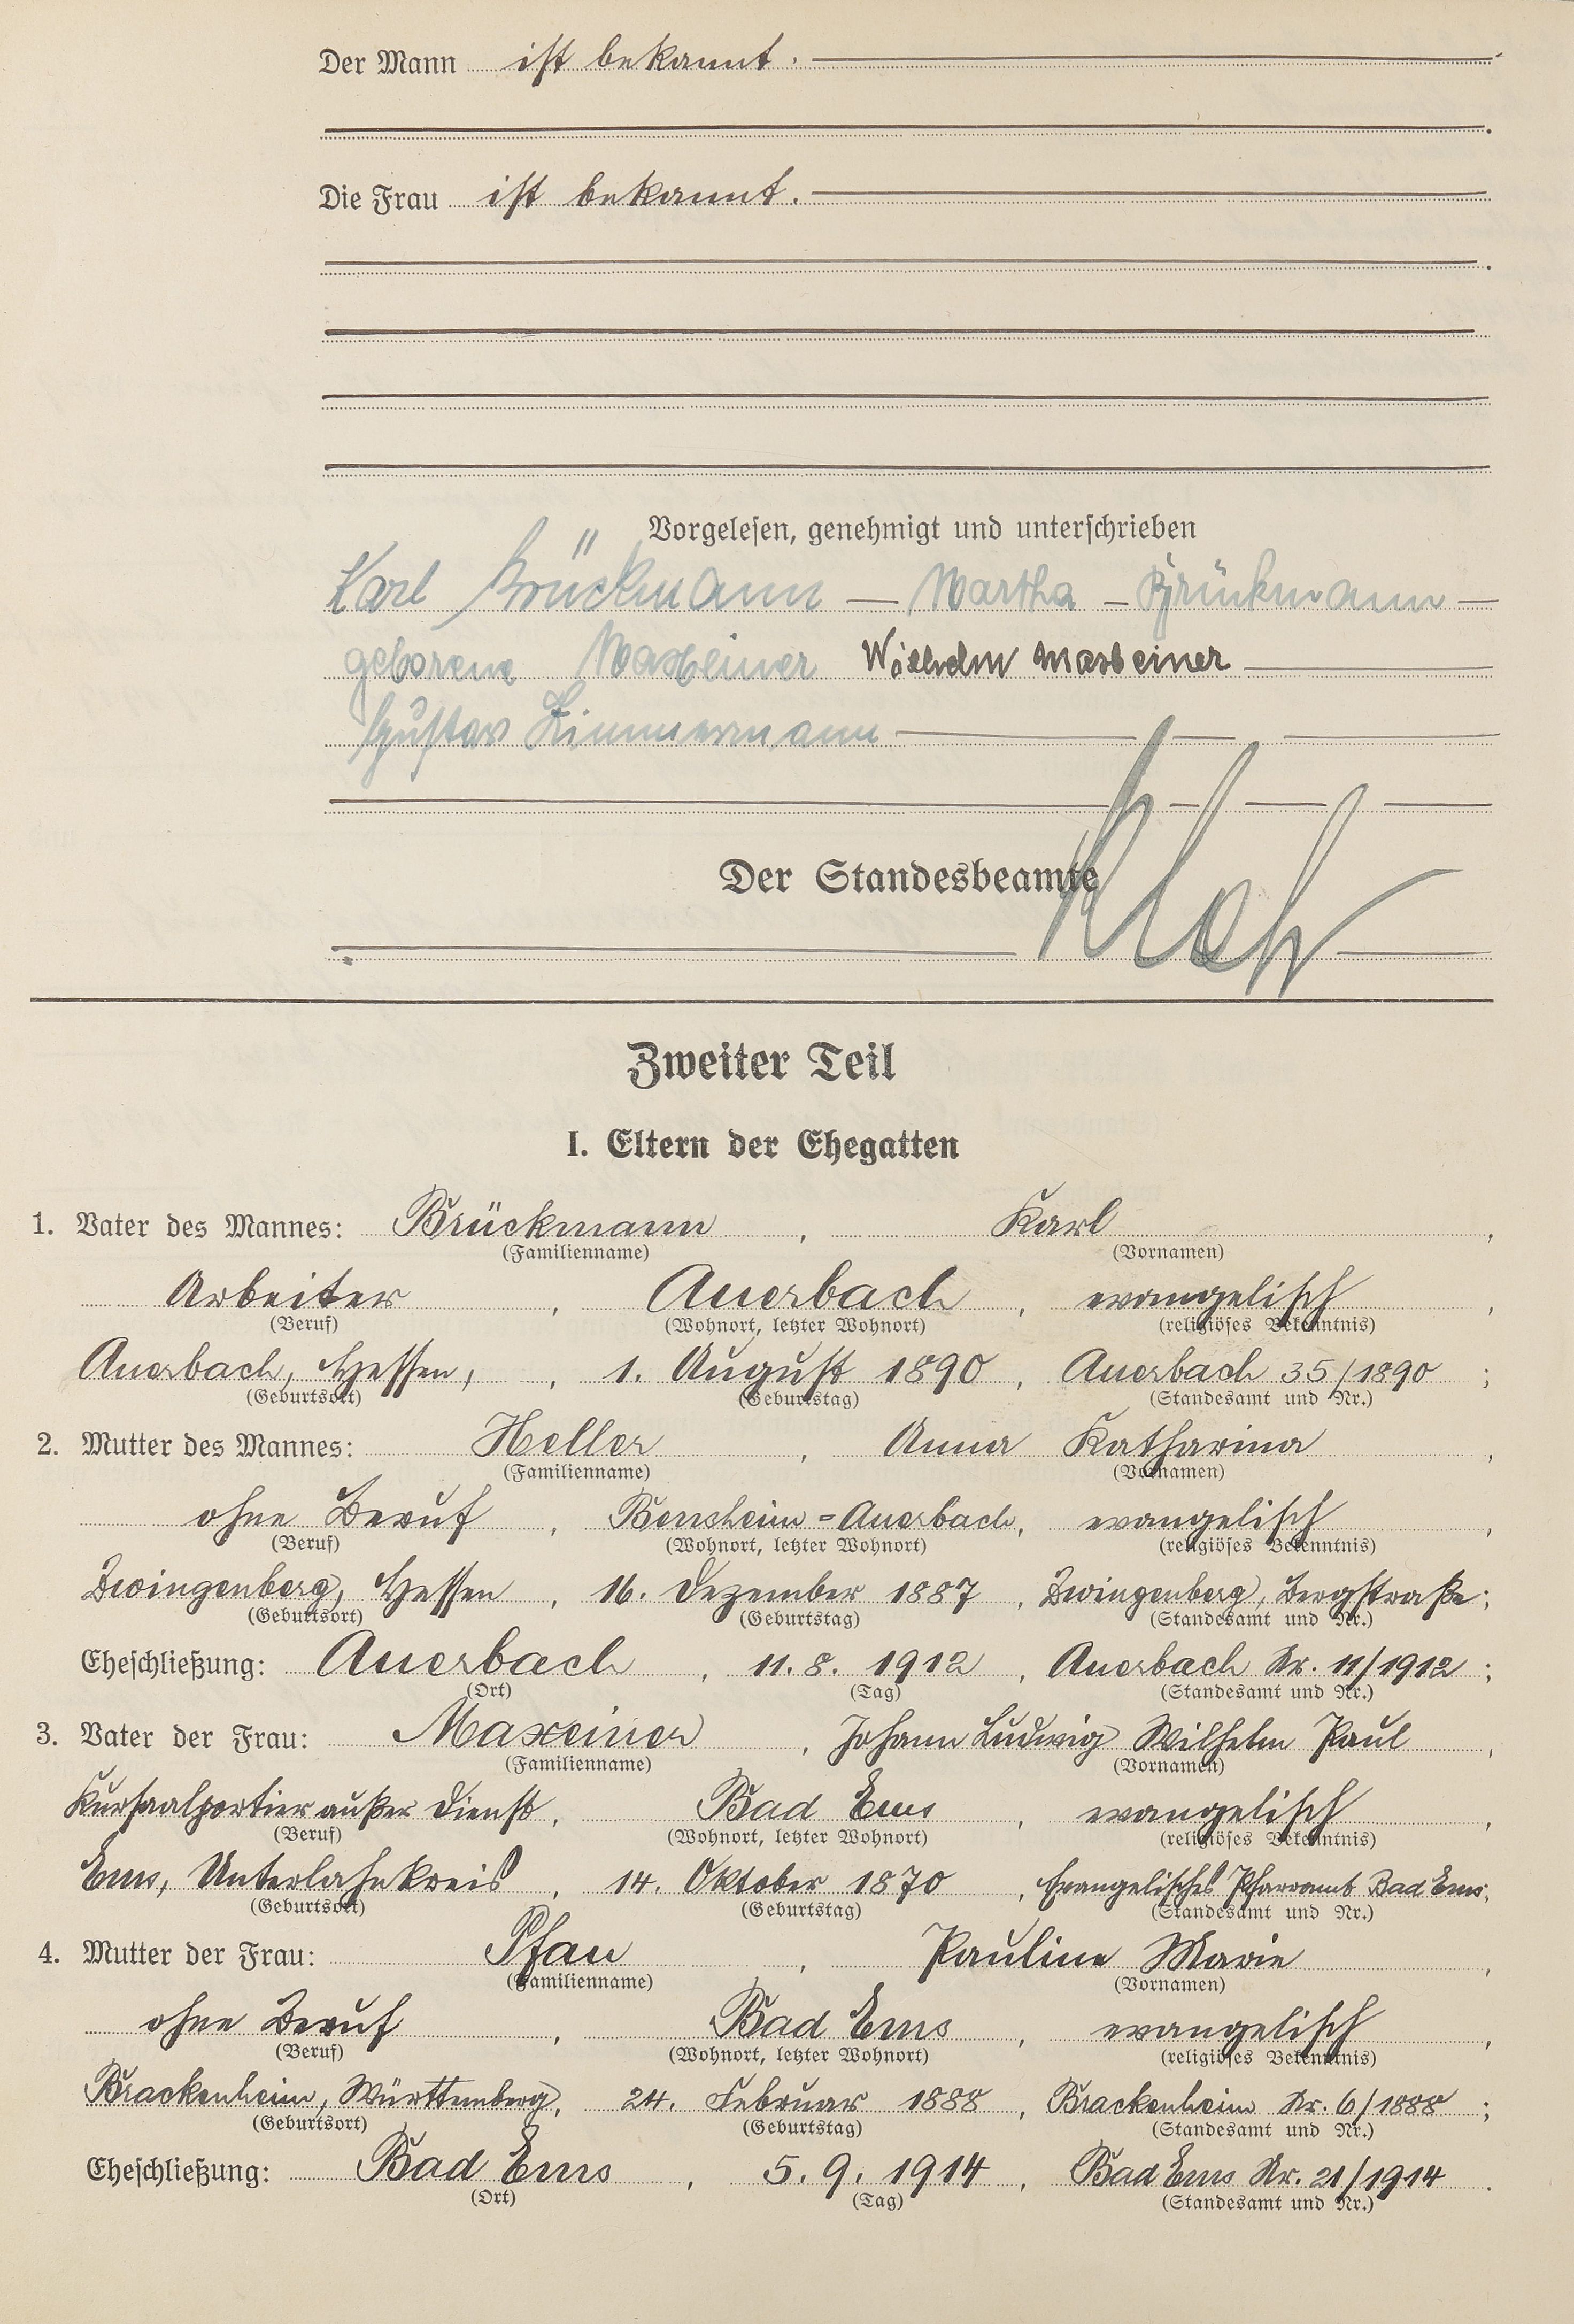 Der Mann ist bekannt.
Die Frau ist bekannt.
Vorgelesen, genehmigt und unterschrieben
Karl Brückmann — Martha — Brückmann —
geborene Maxeiner Wilhelm Maxeiner
Gustav Zimmermann
Der Standesbeamte
Zweiter Teil
I. Eltern der Ehegatten
1. Vater des Mannes: Brückmann, Karl,
(Familienname) (Vornamen)
Arbeiter, Auerbach, evangelisch,
(Beruf) (Wohnort, letzter Wohnort) (religiöses Bekenntnis)
Auerbach, Hessen, , 1. August 1890, Auerbach 35/1890;
(Geburtsort) (Geburtstag) (Standesamt und Nr.)
2. Mutter des Mannes: Heller, Anna Katharina,
(Familienname) (Vornamen)
ohne Beruf, Bensheim=Auerbach, evangelisch,
(Beruf) (Wohnort, letzter Wohnort) (religiöses Bekenntnis)
Zwingenberg, Hessen, 16. Dezember 1887, Zwingenberg, Bergstraße;
(Geburtsort) (Geburtstag) (Standesamt und Nr.)
Eheschließung: Auerbach, 11. 8. 1912, Auerbach Nr. 11/1912;
(Ort) (Tag) (Standesamt und Nr.)
3. Vater der Frau: Maxeiner, Johann Ludwig Wilhelm Paul,
(Familienname) (Vornamen)
Kursaalportier außer Dienst, Bad Ems, evangelisch,
(Beruf) (Wohnort, letzter Wohnort) (religiöses Bekenntnis)
Ems, Unterlahnkreis, 14. Oktober 1870, Evangelisches Pfarramt Bad Ems;
(Geburtsort) (Geburtstag) (Standesamt und Nr.)
4. Mutter der Frau: Pfau, Pauline Marie,
(Familienname) (Vornamen)
ohne Beruf, Bad Ems, evangelisch,
(Beruf) (Wohnort, letzter Wohnort) (religiöses Bekenntnis)
Brackenheim, Württemberg, 24. Februar 1888, Brackenheim Nr. 6/1888;
(Geburtsort) (Geburtstag) (Standesamt und Nr.)
Eheschließung: Bad Ems, 5. 9. 1914, Bad Ems Nr. 21/1914.
(Ort) (Tag) (Standesamt und Nr.)